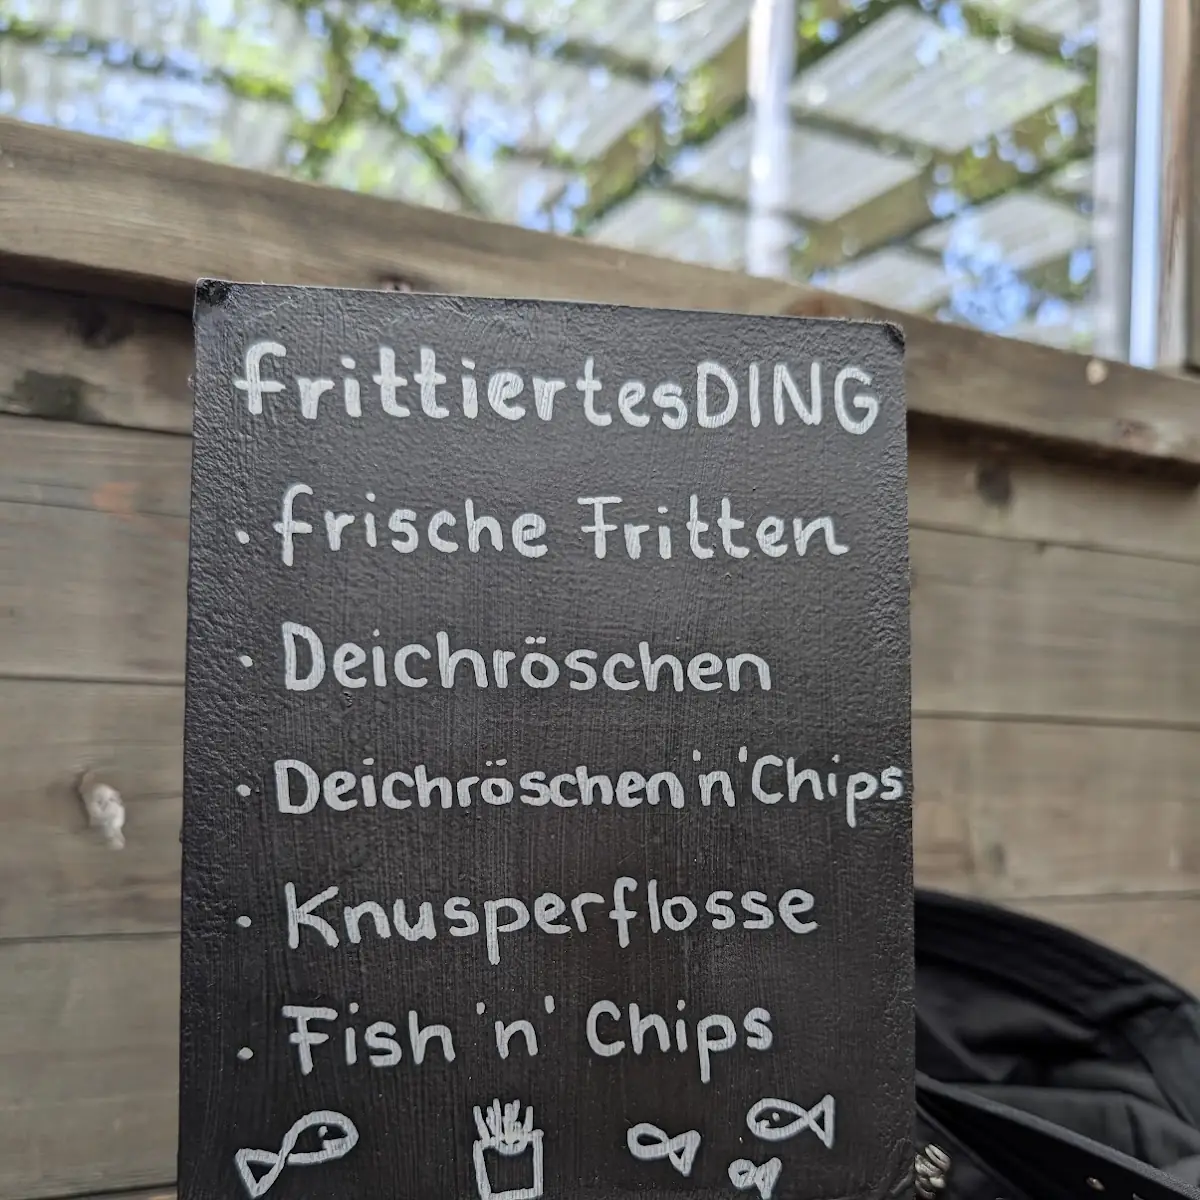 frittiertesDING
· frische Fritten
· Deichröschen
· Deichröschen'n'Chips
· Knusperflosse
· Fish 'n' Chips